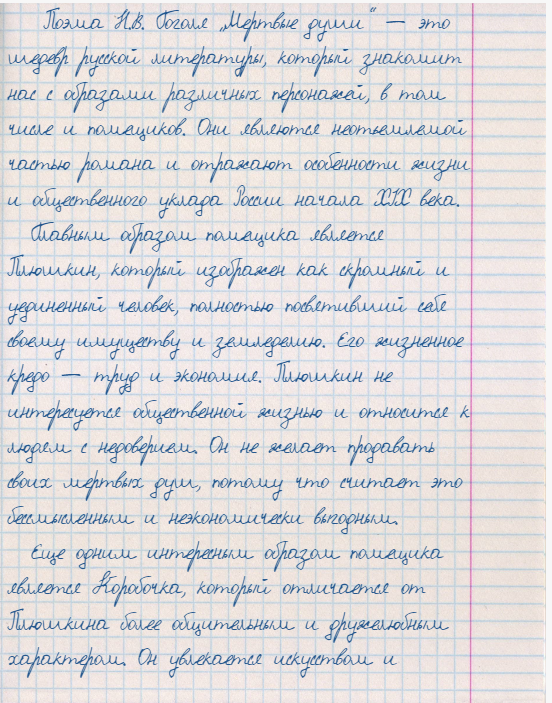 Поэма Н.В. Гоголя „Мертвые души" — это
шедевр русской литературы, который знакомит
нас с образами различных персонажей, в том
числе и помещиков. Они являются неотъемлемой
частью романа и отражают особенности жизни
и общественного уклада России начала XIX века.
Главным образом помещика является
Плюшкин, который изображен как скромный и
уединенный человек, полностью посвятивший себя
своему имуществу и земледелию. Его жизненное
кредо — труд и экономия. Плюшкин не
интересуется общественной жизнью и относится к
людям с недоверием. Он не желает продавать
своих мертвых душ, потому что считает это
бессмысленным и неэкономически выгодным.
Еще одним интересным образом помещика
является Коробочка, который отличается от
Плюшкина более общительным и дружелюбным
характером. Он увлекается искусством и